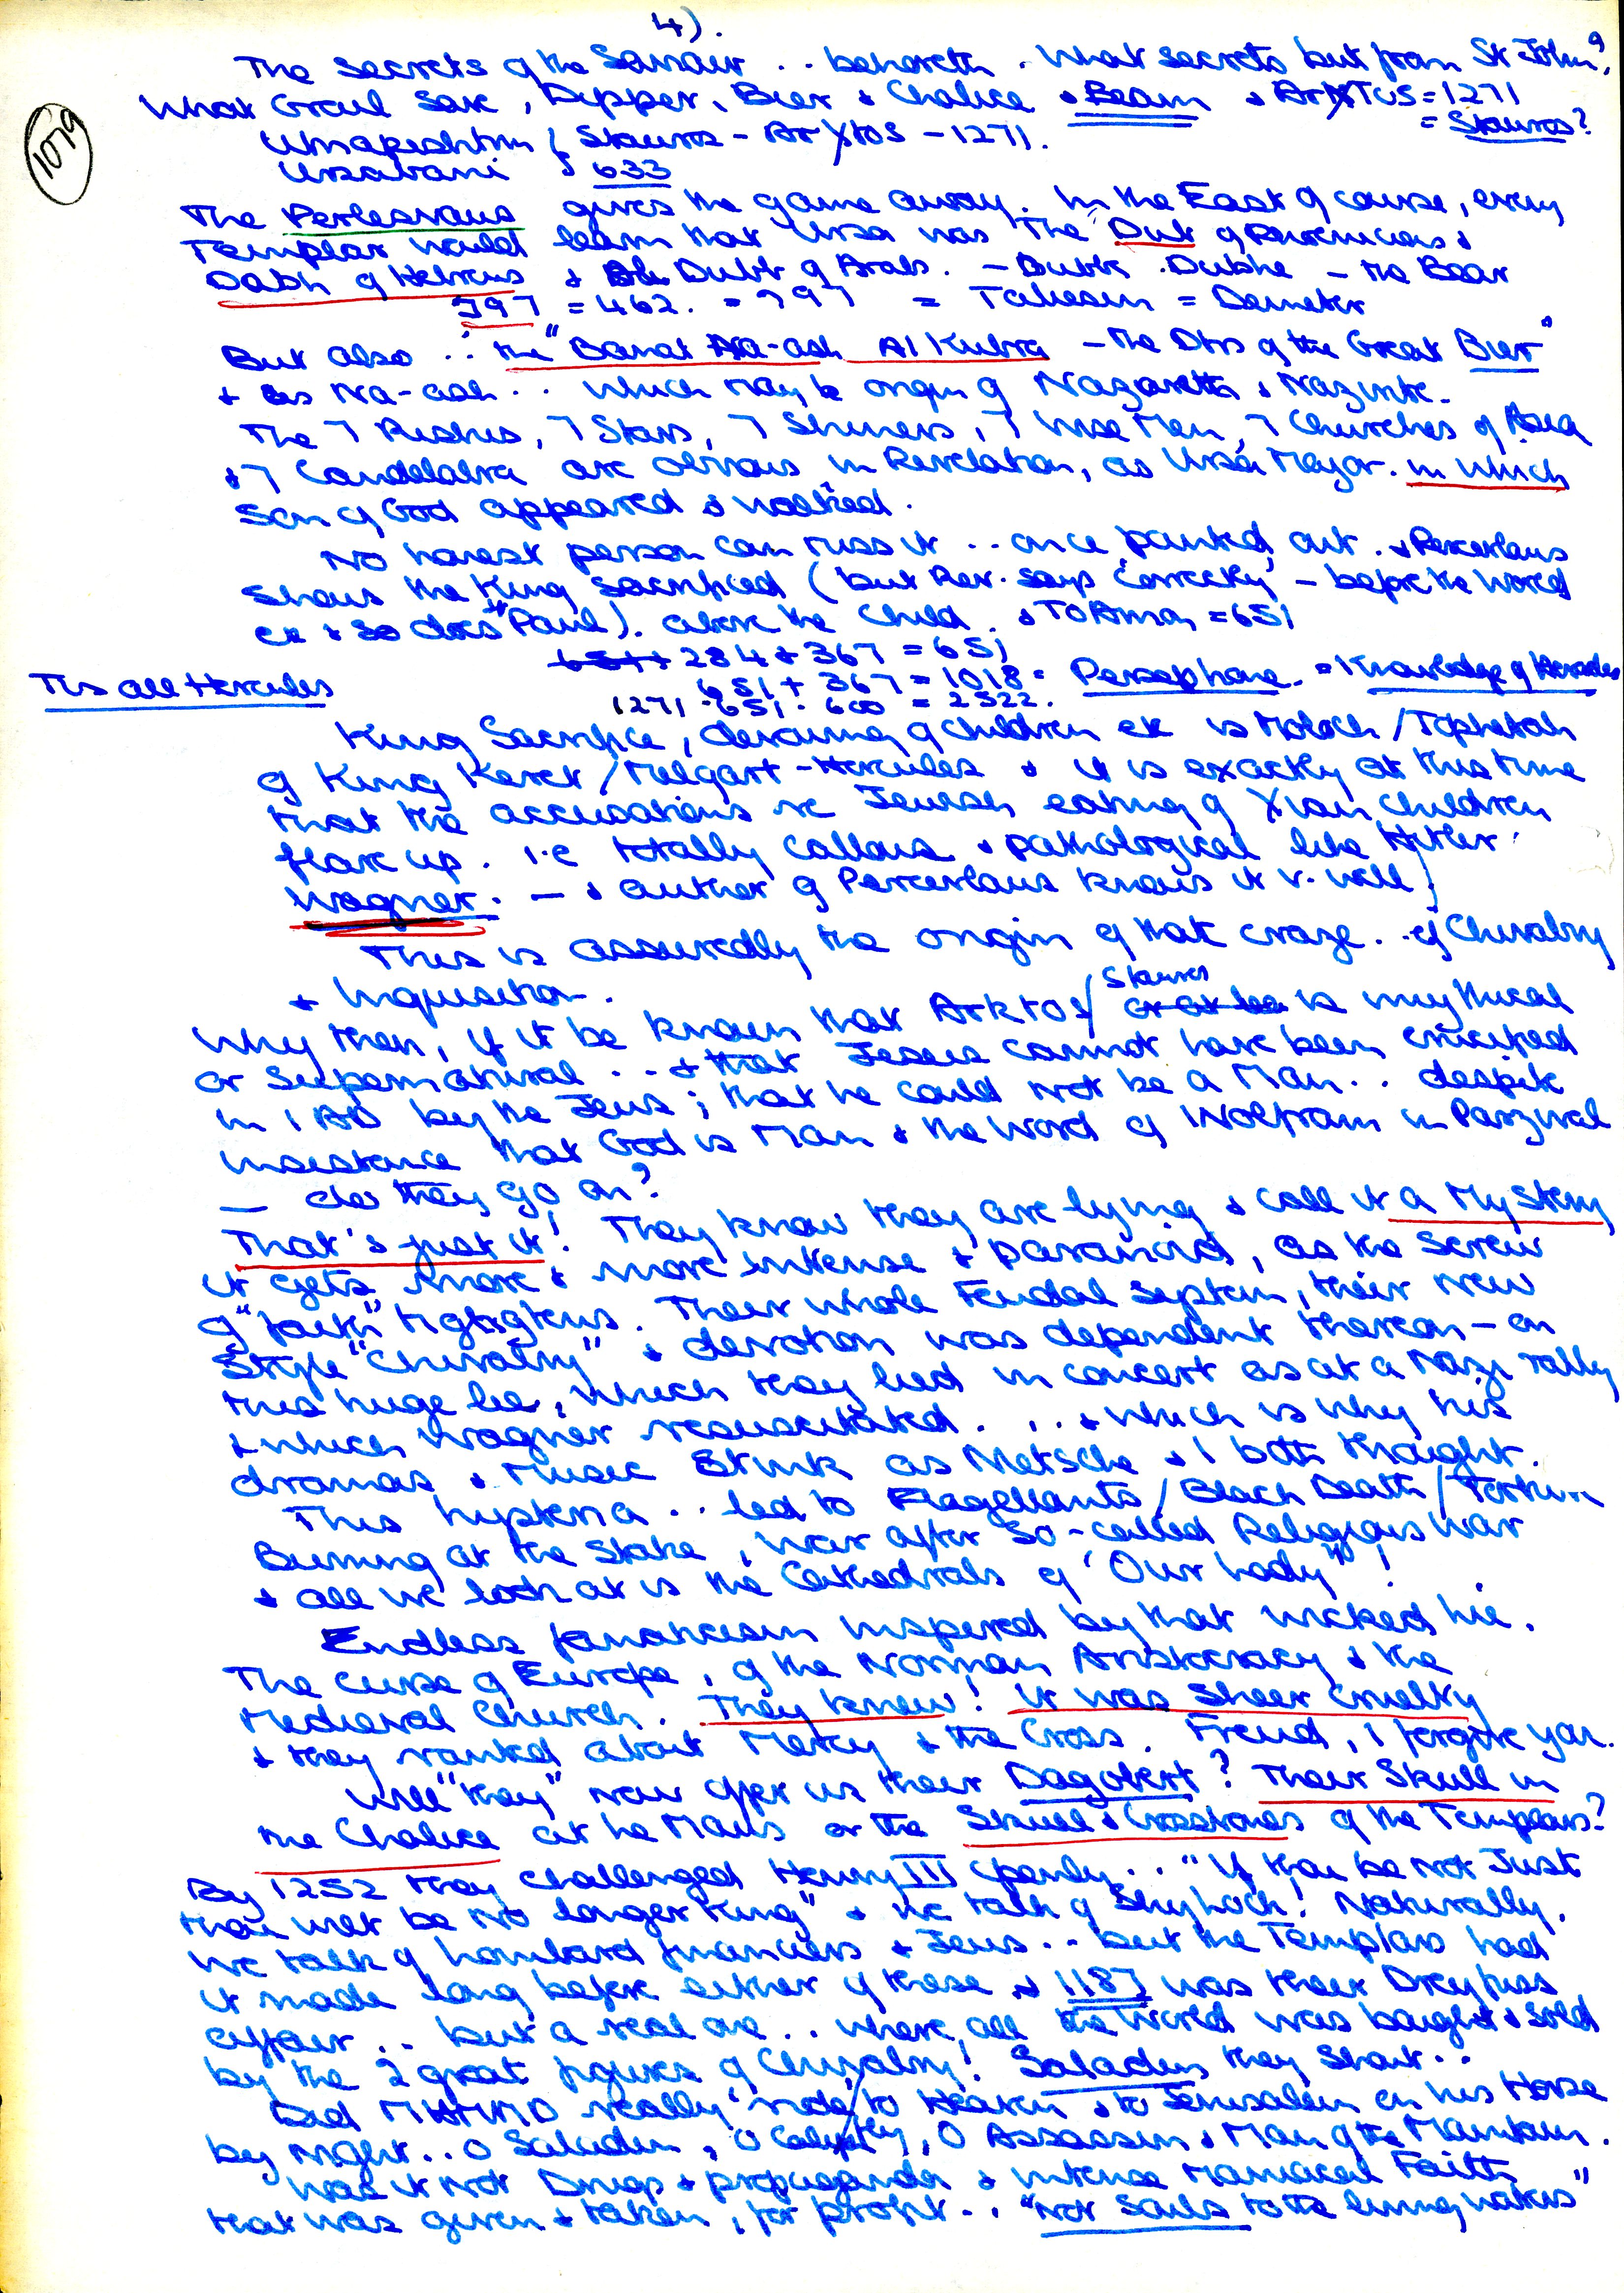 4).
The Secrets of the Saviour .. behoveth. What secrets but from St John?
What Graal save, Dipper, Bier & Chalice & Beam & ArkTOS = 1271
= Stauros?
1079
Utnapishtim { Stauros - Ar / tos - 1271.
Ursabani & 633
The Perlesvaus gives the game away. In the East of course, every
Templar would learn that Ursa was "The Dub of Phoenicians &
Dabh of Hebrews & Dubb of Arabs. - Dubb. Dubhe - the Bear
= 462. = = Taliesin = Demeter
But also .. the "Banat Na-ash Al Kubra - the Dtrs of the Great Bier"
& as Na-ash .. which may be origin of Nazareth & Nazirite.
The 7 Rishis, 7 Stars, 7 Shiners, 7 Wise Men, 7 Churches of Asia
& 7 Candelabra are obvious in Revelation, as Ursa Major. in which
Son of God appeared & walked.
No honest person can miss it .. once pointed out. & Percevlaus
shows the King sacrificed (but Rev. says correctly - before the World
etc & so does Paul). above the Child. & = 651
284 + 367 = 651
Tis all Hercules
651 + 367 = 1018 = Persephone. = Knowledge of Herakles
1271 . 651 . 600 = 2522.
King Sacrifice, devouring of children etc is Moloch / Tophetoh
of King / Melqart - Hercules & it is exactly at this time
that the accusations re Jewish eating of Xian Children
flare up. i.e totally callous & pathological like Hitler
Wagner. - & author of Percevlaus knows it v. well!
This is assuredly the origin of that craze .. of Chivalry
& Inquisition.
Why then, if it be known that Arktos / Stauros is mythical
or Supernatural ... & that Jesus cannot have been crucified
in 1 AD by the Jews; that he could not be a Man .. despite
insistence that God is Man & the word of Wolfram in Parzival
- do they go on?
That's just it! They know they are lying & call it a Mystery
it gets more & more intense & paranoid, as the screw
of "faith" tightens. Their whole Feudal System, their new
Style "Chivalry" & devotion was dependent thereon - on
this huge lie, which they lied in concert as at a Nazi rally
& which Wagner resuscitated ... & which is why his
dramas & Music stink as Nietsche & I both thought.
This hysteria .. led to Flagellants / Black Death / Torture
Burning at the Stake, War after So-called Religious War
& all we look at is the Cathedrals of "Our Lady"!
Endless fanaticism inspired by that wicked lie.
The curse of Europe, of the Norman Aristocracy & the
Medieval Church. They knew! It was sheer cruelty
& they ranted about Mercy & the Cross. Freud, I forgive you.
Will "they" now offer us their Dagobert? Their Skull in
the Chalice at Le Mans or the Skull & Crossbones of the Templars?
By 1252 they challenged Henry III openly .. "If thou be not Just
thou wilt be no longer King" & we talk of Shylock! Naturally.
We talk of Lombard financiers & Jews .. but the Templars had
it made long before either of these & 1187 was their Dreyfuss
affair .. but a real one .. where all the World was bought & sold
by the 2 great figures of Chivalry! Saladin they shout ..
Did MHMMD really 'ride' to Heaven & to Jerusalem on his Horse
by night .. O Saladin, O , O Assassin & Man of the Mountain.
Was it not Drugs & propaganda & intense Maniacal Faith
that was given & taken, for profit .. "Not Souls to the living waters"